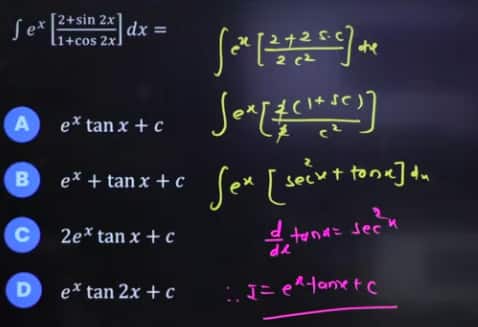 ∫ eˣ [2+sin 2x / 1+cos 2x] dx =
A eˣ tan x + c
B eˣ + tan x + c
C 2eˣ tan x + c
D eˣ tan 2x + c
∫ eˣ [2+2 s·c / 2 c²] dx
∫ eˣ [2(1+sc) / 2 c²]
∫ eˣ [sec²x + tanx] dx
d/dx tanx = sec²x
∴ I = eˣ tanx + c